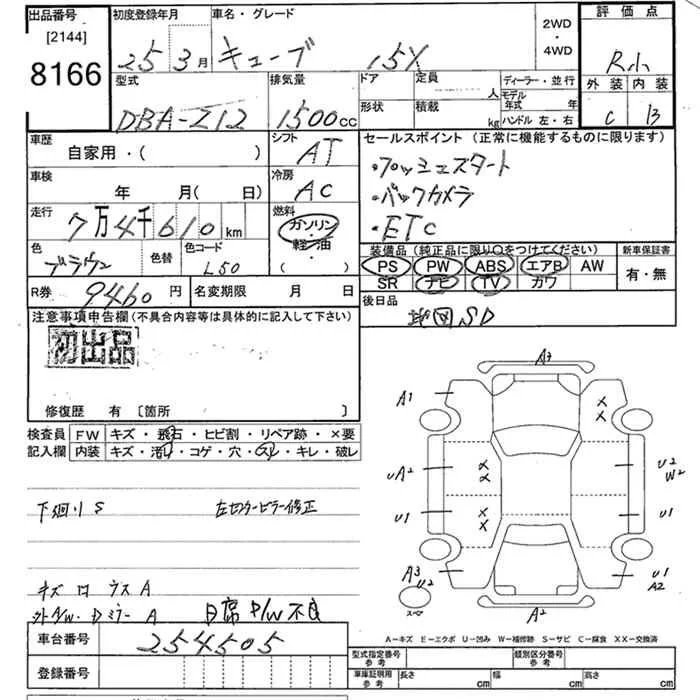 出品番号 [2144] 8166
初度登録年月 25 3月
車名・グレード キューブ 15X
2WD ・ 4WD
評価点 R小
外装 内装
C B
型式 DBA-Z12
排気量 1500cc
ドア 定員 人
形状 積載 kg
ディーラー・並行
モデル年式 年
ハンドル 左・右
車歴 自家用・( )
シフト AT
車検 年 月( 日)
冷房 AC
走行 7万4千610km
燃料 ガソリン・軽油 ( )
色 ブラウン 色替 色コード L50
セールスポイント (正常に機能するものに限ります)
・プッシュスタート
・バックカメラ
・ETC
装備品 (純正品に限り○をつけてください) 新車保証書
PS PW ABS エアB AW 有・無
SR ナビ TV カワ
R券 9460円 名変期限 月 日
後日品
地図SD
注意事項申告欄 (不具合内容等は具体的に記入して下さい)
初出品
修復歴 有 〔箇所 〕
検査員 FW キズ・飛石・ヒビ割・リペア跡・×要
記入欄 内装 キズ・汚れ・コゲ・穴・スレ・キレ・破レ
下廻り S 左センターピラー修正
A3
A1
X X
UA2 X X U2 W2
U1 X X U1
A3 U2 U1 A2
スペア A2
キズ ロ ウス A
D ミラー A 日席 P/W 不良
A-キズ E-エクボ U-凹み W-補修跡 S-サビ C-腐食 XX-交換済
車台番号 254505
登録番号
型式指定番号 参考 類別区分番号 参考
車庫証明用 参考 長さ cm 幅 cm 高さ cm